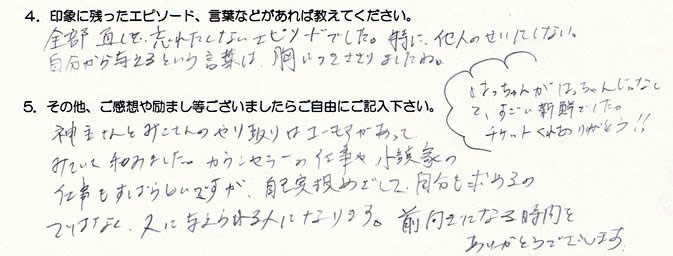 4. 印象に残ったエピソード、言葉などがあれば教えてください。
全部 直しを、忘れたくないエピソードでした。特に、他人のせいにしない。
自分から与えるという言葉は、胸につきささりましたね。
はっちゃんがはっちゃんじゃなし
て、すごい新鮮でしたっ
チケットくれありがとう!!
5. その他、ご感想や励まし等ございましたらご自由にご記入下さい。
神主さんとみこさんのやり取りはユーモアがあって
みていて和みました。カウンセラーの仕事や小説家の
仕事もすばらしいですが、自己実現めざして、自分も求めるの
ではなく、人に与えられる人になります。前向きになる時間を
ありがとうございます。